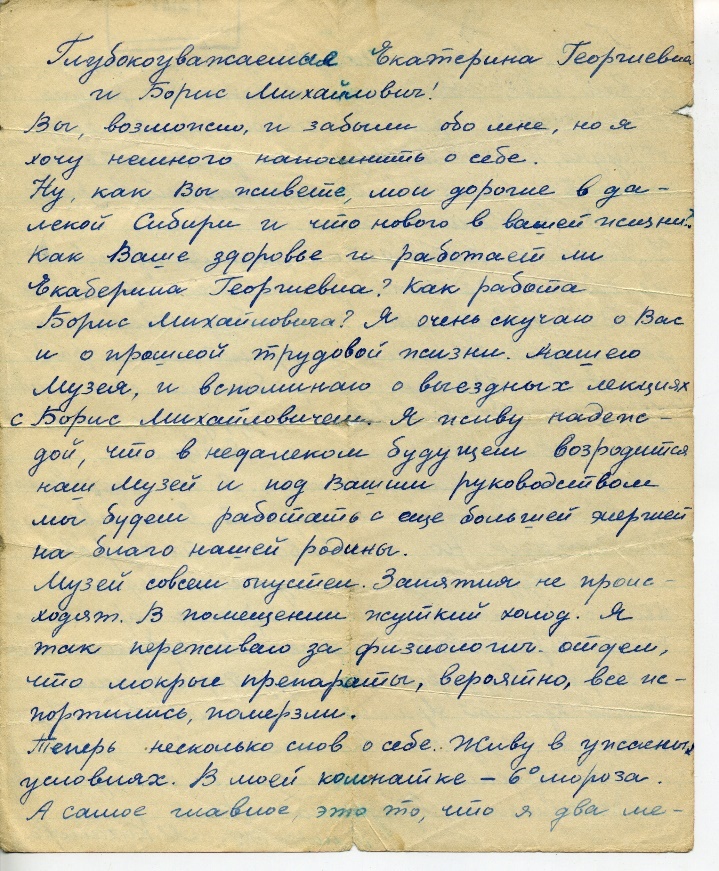 Глубокоуважаемые Екатерина Георгиевна
и Борис Михайлович!
Вы, возможно, и забыли обо мне, но я
хочу немного напомнить о себе.
Ну, как Вы живете, мои дорогие в да-
лекой Сибири и что нового в вашей жизни?
Как Ваше здоровье и работает ли
Екаберина Георгиевна? Как работа
Борис Михайловича? Я очень скучаю о Вас
и о прошлой трудовой жизни. Нашего
Музея, и вспоминаю о выездных лекциях
с Борис Михайловичем. Я живу надеж-
дой, что в недалеком будущем возродится
наш Музей и под Вашим руководством
мы будем работать с еще большей энергией
на благо нашей родины.
Музей совсем опустел. Занятия не проис-
ходят. В помещении жуткий холод. Я
так переживаю за физиологич. отдел,
что мокрые препараты, вероятно, все ис-
портились, померзли.
Теперь несколько слов о себе. Живу в ужасных
условиях. В моей комнатке – 6° мороза.
А самое главное, это то, что я два ме-